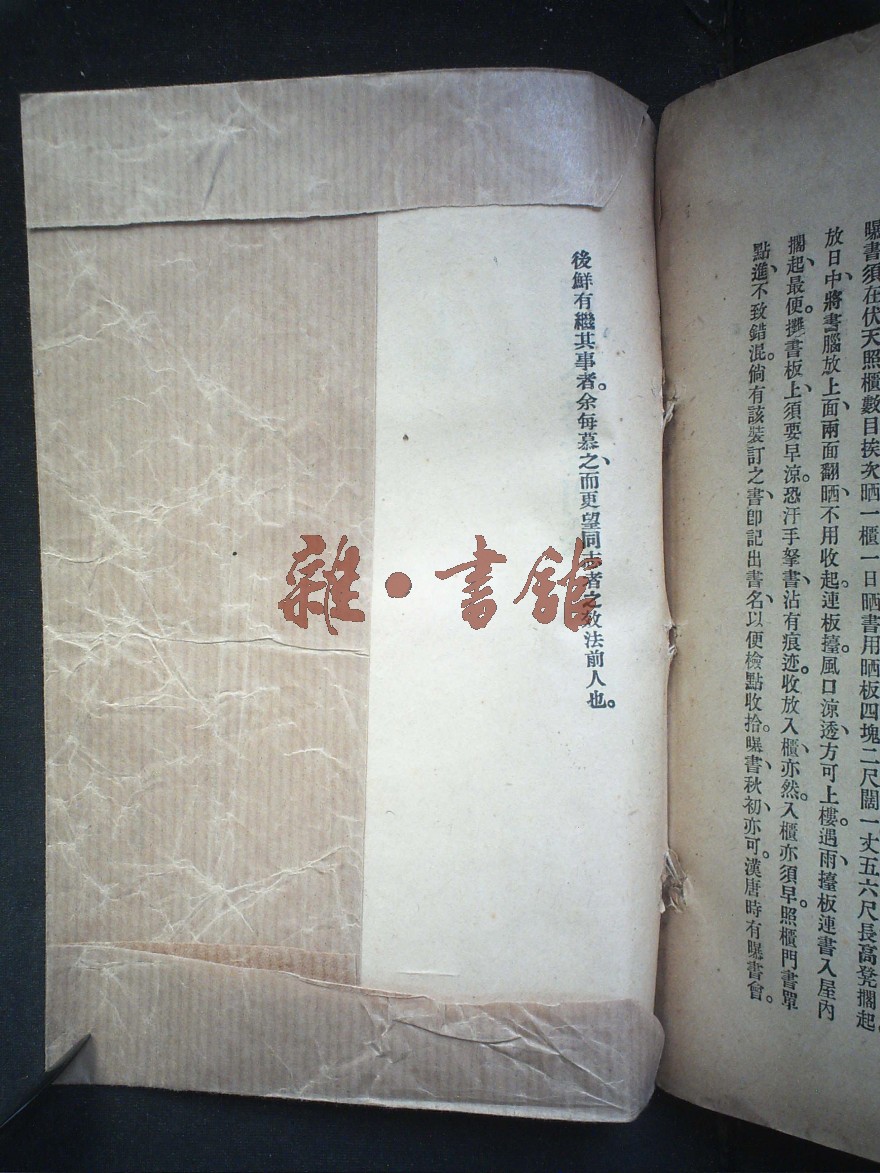 曝書須在伏天照櫃數目挨次晒一櫃一日晒書用晒板四塊二尺闊一丈五六尺長高凳擱起。
放日中、將書腦放上面、兩面翻晒、不用收起。連板擡風口涼透、方可上樓。遇雨擡板連書入屋內
擱起、最便。攤書板上、須要早涼。恐汗手拏書、沾有痕迹。收放入櫃亦然。入櫃亦須早、照櫃門書單
點進、不致錯混。倘有該裝訂之書、卽記出書名、以便檢點收拾。曝書、秋初亦可。漢唐時有曝書會。
後鮮有繼其事者。余每慕之、而更望同志者之效法前人也。
雜·書館